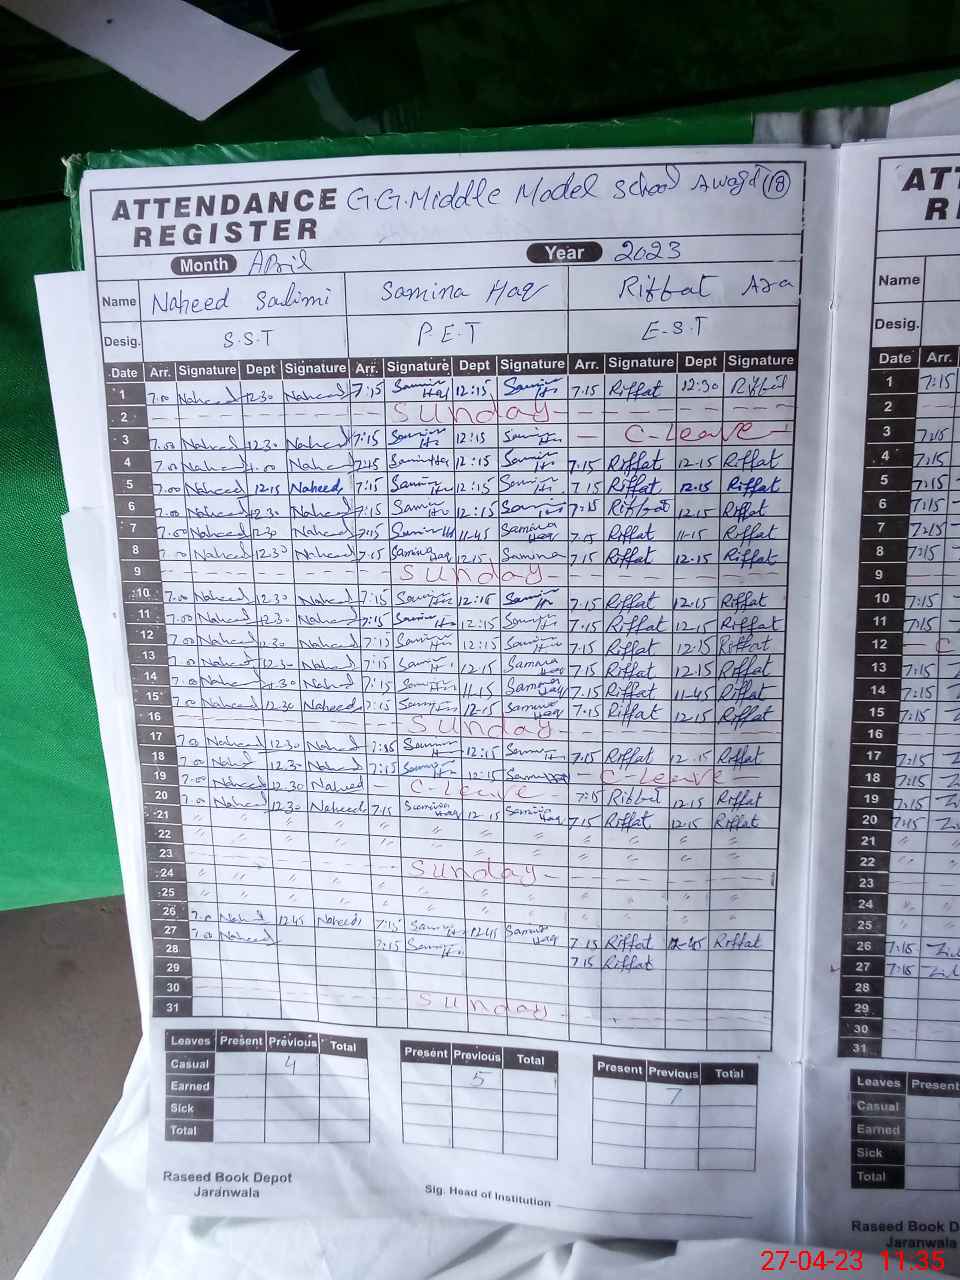 ATTENDANCE REGISTER G.G.Middle Model School Awagt (18)
Month April Year 2023
Name Naheed Salimi Samina Haq Riffat Ara
Desig. S.S.T P.E.T E.S.T
Date Arr. Signature Dept Signature Arr. Signature Dept Signature Arr. Signature Dept Signature
1 7.00 Naheed 12.30 Naheed 7:15 Samina Haq 12:15 Samina 7.15 Riffat 12:30 Riffat
2 Sunday
3 7.00 Naheed 12.30 Naheed 7:15 Samina 12:15 Samina C-Leave
4 7.00 Naheed Naheed Samina Haq 12:15 Samina 7.15 Riffat 12.15 Riffat
5 7.00 Naheed 12.15 Naheed 7:15 Samina 12:15 Samina 7.15 Riffat 12.15 Riffat
6 7.00 Naheed 12.30 Naheed 7:15 Samina 12:15 Samina 7:15 Riffat 12.15 Riffat
7 7.00 Naheed 12.30 Naheed Samina 11:45 Samina Haq 7.15 Riffat 11.15 Riffat
8 7.00 Naheed 12.30 Naheed 7:15 Samina Haq 12.15 Samina 7.15 Riffat 12.15 Riffat
9 Sunday
10 7.00 Naheed 12.30 Naheed 7:15 Samina 12:15 Samina 7.15 Riffat 12.15 Riffat
11 7.00 Naheed 12.30 Naheed 7:15 Samina 12:15 Samina 7.15 Riffat 12.15 Riffat
12 7.00 Naheed 12.30 Naheed 7:15 Samina 12:15 Samina 7.15 Riffat 12.15 Riffat
13 7.00 Naheed 12.30 Naheed 7:15 Samina 12.15 Samina Haq 7.15 Riffat 12.15 Riffat
14 7.00 Naheed 12.30 Naheed 7:15 Samina 11.15 Samina Haq 7.15 Riffat 11.45 Riffat
15 7.00 Naheed 12.30 Naheed 7:15 Samina 12.15 Samina Haq 7.15 Riffat 12.15 Riffat
16 Sunday
17 7.00 Naheed 12.30 Naheed Samina 12:15 Samina 7.15 Riffat 12.15 Riffat
18 7.00 Naheed 12.30 Naheed 7:15 Samina 12:15 Samina C-Leave
19 7.00 Naheed 12.30 Naheed C-Leave 7:15 Riffat 12.15 Riffat
20 7.00 Naheed 12.30 Naheed 7.15 Samina Haq 12.15 Samina Haq 7.15 Riffat 12.15 Riffat
21 " " " " " " " " " " " "
22 " " " " " " " " " " " "
23 Sunday
24 " " " " " " " " " " " "
25 " " " " " " " " " " " "
26 7.00 Naheed 12.45 Naheed 7:15 Samina 12.45 Samina Haq 7.15 Riffat 12.45 Riffat
27 7.00 Naheed 7:15 Samina 7.15 Riffat
28
29
30 Sunday
31
Leaves Present Previous Total Present Previous Total Present Previous Total
Casual 4 5 7
Earned
Sick
Total
Raseed Book Depot
Jaranwala
Sig. Head of Institution
Name
Desig.
Date Arr.
1 7:15
2
3 7:15
4 7:15
5 7:15
6 7:15
7 7:15
8 7:15
9
10 7:15
11 7:15
12 C
13 7:15
14 7:15
15 7:15
16
17 7:15
18 7:15
19 7:15
20 7:15
21
22
23
24
25
26 7:15
27 7:15
28
29
30
31
Leaves Present
Casual
Earned
Sick
Total
Raseed Book
Jaranwala
27-04-23 11:35